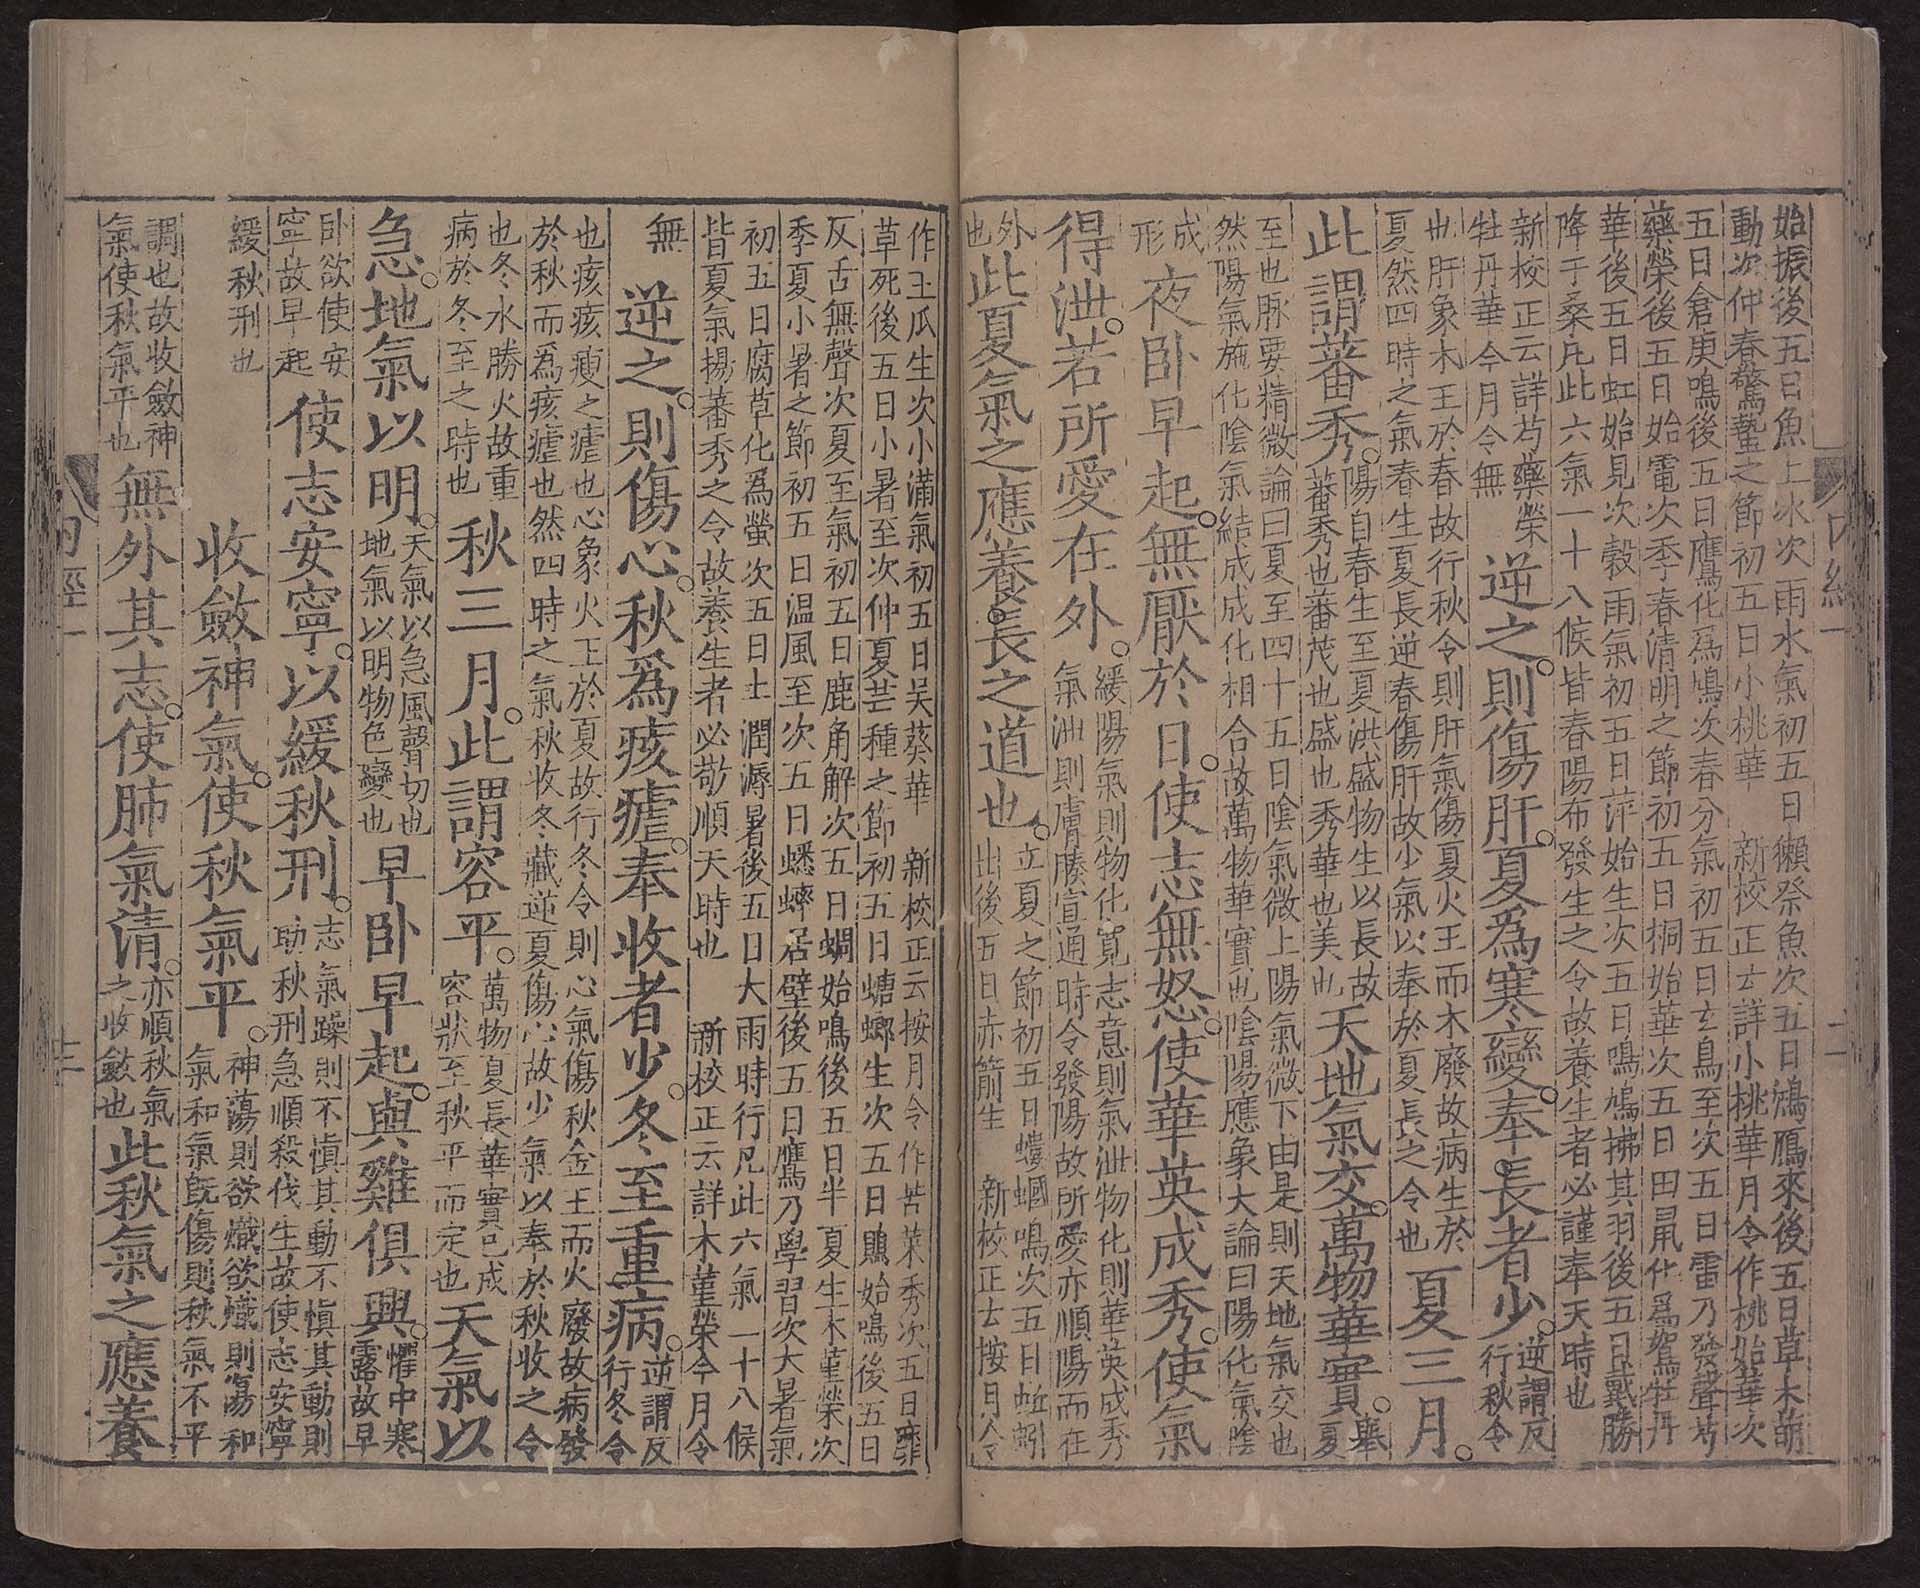 始振後五日魚上冰次雨水氣初五日獺祭魚次五日鴻鴈來後五日草木萌
動次仲春驚蟄之節初五日小桃華　新校正云詳小桃華月令作桃始華次
五日倉庚鳴後五日鷹化爲鳩次春分氣初五日玄鳥至次五日雷乃發聲芍
藥榮後五日始電次季春清明之節初五日桐始華次五日田鼠化爲鴽牡丹
華後五日虹始見次穀雨氣初五日萍始生次五日鳴鳩拂其羽後五日戴勝
降于桑凡此六氣一十八候皆春陽布發生之令故養生者必謹奉天時也
新校正云詳芍藥榮
牡丹華今月令無
逆之則傷肝夏爲寒變奉長者少
逆謂反
行秋令
也肝象木王於春故行秋令則肝氣傷夏火王而木廢故病生於
夏然四時之氣春生夏長逆春傷肝故少氣以奉於夏長之令也
夏三月
此謂蕃秀
陽自春生至夏洪盛物生以長故
蕃秀也蕃茂也盛也秀華也美也
天地氣交萬物華實
舉
夏
至也脉要精微論曰夏至四十五日陰氣微上陽氣微下由是則天地氣交也
然陽氣施化陰氣結成成化相合故萬物華實也陰陽應象大論曰陽化氣陰
成
形
夜卧早起無厭於日使志無怒使華英成秀使氣
得泄若所愛在外
緩陽氣則物化寬志意則氣泄物化則華英成秀
氣泄則膚腠宣通時令發陽故所愛亦順陽而在
外
也
此夏氣之應養長之道也
立夏之節初五日螻蟈鳴次五日蚯蚓
出後五日赤箭生　新校正云按月令
作王瓜生次小滿氣初五日吴葵華　新校正云按月令作苦菜秀次五日靡
草死後五日小暑至次仲夏芒種之節初五日螗螂生次五日鵙始鳴後五日
反舌無聲次夏至氣初五日鹿角解次五日蜩始鳴後五日半夏生木堇榮次
季夏小暑之節初五日温風至次五日蟋蟀居壁後五日鷹乃學習次大暑氣
初五日腐草化爲螢次五日土潤溽暑後五日大雨時行凡此六氣一十八候
皆夏氣揚蕃秀之令故養生者必敬順天時也　新校正云詳木堇榮今月令
無
逆之則傷心秋爲痎瘧奉收者少冬至重病
逆謂反
行冬令
也痎痎瘦之瘧也心象火王於夏故行冬令則心氣傷秋金王而火廢故病發
於秋而爲痎瘧也然四時之氣秋收冬藏逆夏傷心故少氣以奉於秋收之令
也冬水勝火故重
病於冬至之時也
秋三月此謂容平
萬物夏長華實已成
容狀至秋平而定也
天氣以
急地氣以明
天氣以急風聲切也
地氣以明物色變也
早卧早起與雞俱興
懼中寒
露故早
卧欲使安
寧故早起
使志安寧以緩秋刑
志氣躁則不慎其動不慎其動則
助秋刑急順殺伐生故使志安寧
緩秋刑也
收斂神氣使秋氣平
神蕩則欲熾欲熾則傷和
氣和氣既傷則秋氣不平
調也故收斂神
氣使秋氣平也
無外其志使肺氣清
亦順秋氣
之收斂也
此秋氣之應養
内經一